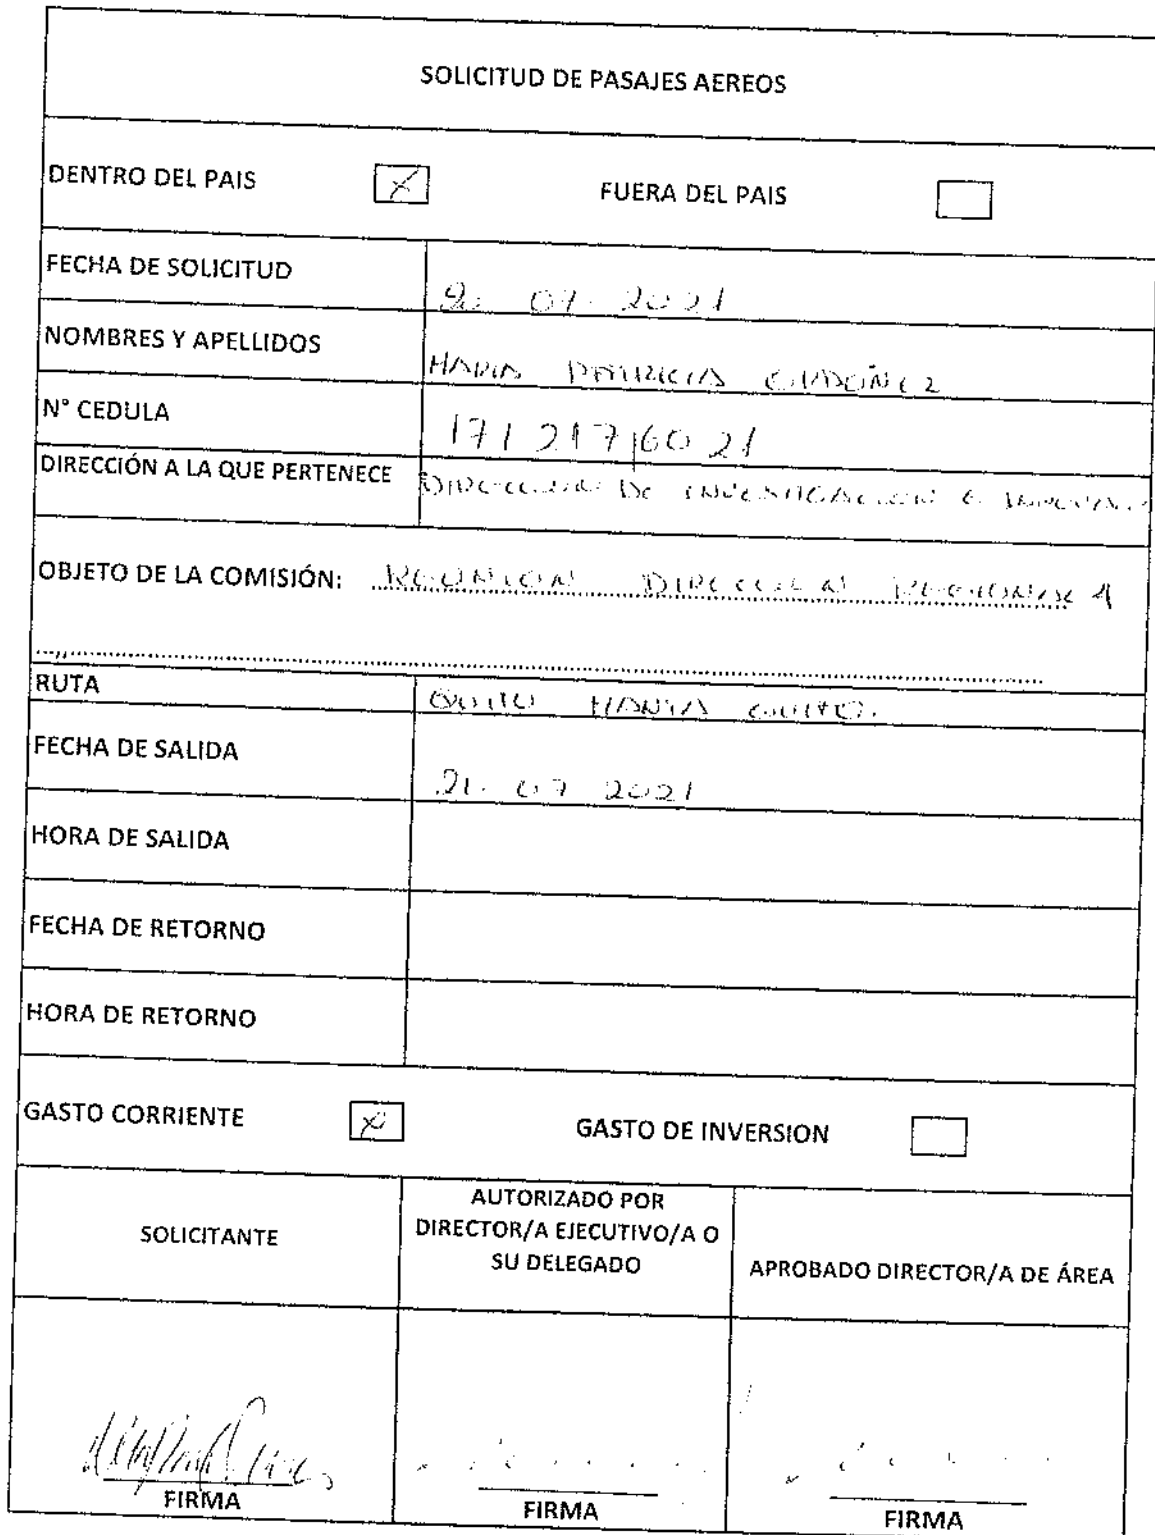 SOLICITUD DE PASAJES AEREOS
DENTRO DEL PAIS X FUERA DEL PAIS
FECHA DE SOLICITUD 20. 07. 2021
NOMBRES Y APELLIDOS MARIA PATRICIA ORDOÑEZ
N° CEDULA 171 217 60 21
DIRECCIÓN A LA QUE PERTENECE DIRECCION DE INVESTIGACION E
OBJETO DE LA COMISIÓN: REUNION DIRECCION REGIONAL 4
RUTA QUITO MANTA QUITO.
FECHA DE SALIDA 21. 07 2021
HORA DE SALIDA
FECHA DE RETORNO
HORA DE RETORNO
GASTO CORRIENTE X GASTO DE INVERSION
SOLICITANTE
AUTORIZADO POR
DIRECTOR/A EJECUTIVO/A O
SU DELEGADO
APROBADO DIRECTOR/A DE ÁREA
FIRMA FIRMA FIRMA